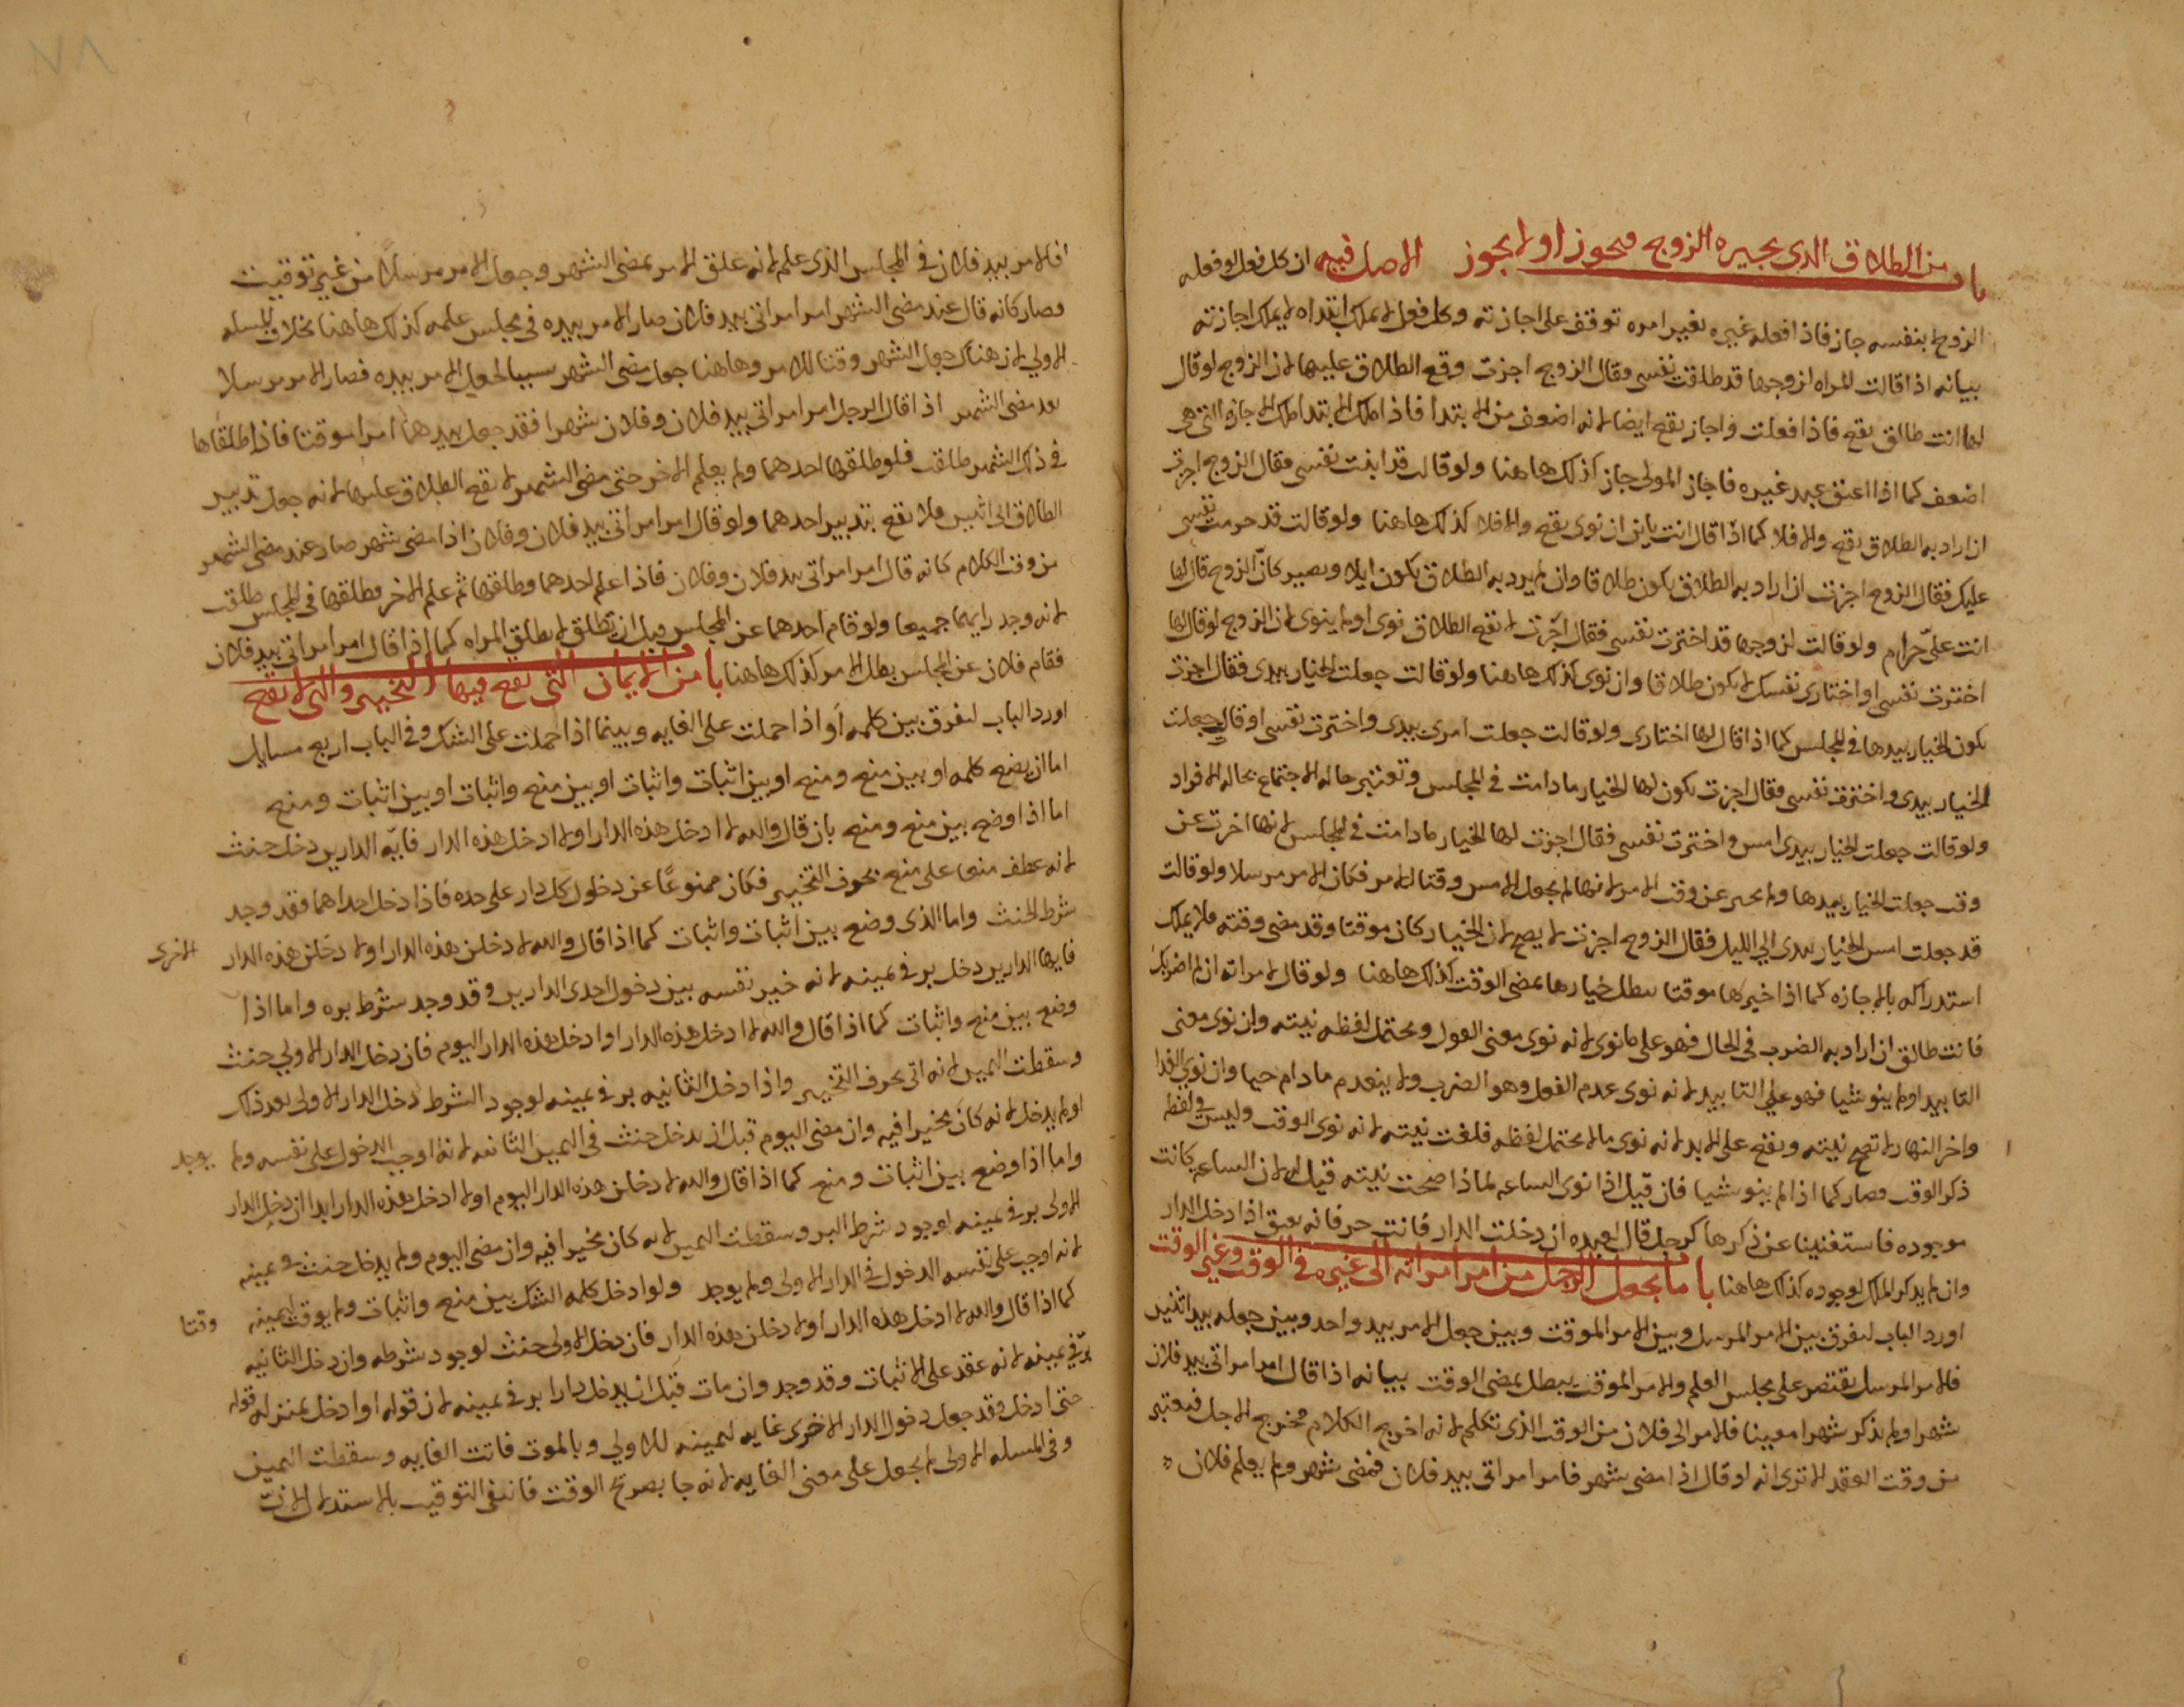 باب من الطلاق الدى يجيره الزوج فيجوز او لا يجوز الاصل فيه ان كل فعل لو فعله
الزوج بنفسه جاز فاذا فعله غيره بغير امره توقف على اجازته وكل فعل لا يملك ابتداه لا يملك اجازته
بيانه اذا قالت المراه لزوجها قد طلقت نفسى فقال الزوج اجزت وقع الطلاق عليها لان الزوج لو قال
لها انت طالق يقع فاذا فعلت واجاز يقع ايضا لانه اضعف من الابتدا فاذا ملك الابتدا ملك الاجازه التى هى
اضعف كما اذا اعتق عبد غيره فاجاز المولى جاز كذلك هاهنا ولو قالت قد ابنت نفسى فقال الزوج اجزت
ان اراد به الطلاق يقع والا فلا كما اذا قال انت باين ان نوى يقع والا فلا كذلك هاهنا ولو قالت قد حرمت نفسى
عليك فقال الزوج اجزت ان اراد به الطلاق يكون طلاقا وان لم يرد به الطلاق يكون ايلا ويصير كانّ الزوج قال لها
انت علىّ حرام ولو قالت لزوجها قد اخترت نفسى فقال اجزت لا يقع الطلاق نوى او لم ينوى لان الزوج لو قال لها
اخترت نفسى او اختارى نفسك لا يكون طلاقا وان نوى كذلك هاهنا ولو قالت جعلت الخيار بيدى فقال اجزت
يكون الخيار بيدها فى المجلس كما اذا قال لها اختارى ولو قالت جعلت امرى بيدى واخترت نفسى او قال جعلت
الخيار بيدى واخترت نفسى فقال اجزت يكون لها الخيار ما دامت فى المجلس وتعتبر حاله الاجتماع بحاله الافراد
ولو قالت جعلت الخيار بيدى امس واخترت نفسى فقال اجزت لها الخيار ما دامت فى المجلس لانها اخرت عن
وقت جعلت الخيار بيدها ولم عن وقت الامر لانها لم يجعل الامس وقتا للامر فكان الامر مرسلا ولو قالت
قد جعلت امس الخيار بيدى الى الليل فقال الزوج اجزت لا يصح لان الخيار كان موقتا وقد مضى وقته فلا يملك
استدراكه بالاجازه كما اذا خيرها موقتا بطل خيارها بمضى الوقت كذلك هاهنا ولو قال لامراته ان لم اضربك
فانت طالق ان اراد به الضرب فى الحال فهو على ما نوى لانه نوى معنى الفول ويحتمل لفظه نيته وان نوى معنى
التابيد او لم ينو شيا فهو على التابيد لانه نوى عدم الفعل وهو الضرب ولا ينعدم ما دام حيا وان نوى الغدا
واخر النهار لا تصح نيته ويقع على الابد لانه نوى ما لا يحتمل لفظه فلغت نيته لانه نوى الوقت وليس فى لفظه
ذكر الوقت فصار كما اذا لم ينو شيا فان قيل اذا نوى الساعه لماذا صحت نيته قيل له لان الساعه كانت
موجوده فاستغنينا عن ذكرها كرجل قال لعبده ان دخلت الدار فانت حر فانه يعتق اذا دخل الدار
وان لم يذكر الملك لوجوده كذلك هاهنا باب ما يجعل الرجل من امر امراته الى غيره فى الوقت وغير الوقت
اورد الباب لتفرق بين الامر المرسل وبين الامر الموقت وبين جعل الامر بيد واحد وبين جعله بيد اثنين
فالامر المرسل يقتصر على مجلس العلم والامر الموقت يبطل بمضى الوقت بيانه اذا قال امر امراتى بيد فلان
شهرا ولم يذكر شهرا معينا فالامر الى فلان من الوقت الذى تكلم لانه اخرج الكلام مخرج الاجل فيعتبر
من وقت العقد الا ترى انه لو قال اذا مضى شهر فامر امراتى بيد فلان فمضى شهر ولم يعلم فلان
فالامر بيد فلان فى المجلس الذى علم لانه علق الامر بمضى الشهر وجعل الامر مرسلاً من غير توقيت
وصار كانه قال عند مضى الشهر امر امراتى بيد فلان صار الامر بيده فى مجلس علمه كذلك هاهنا بخلاف المسله
الاولى لان هناك جعل الشهر وقتا للامر وهاهنا جعل مضى الشهر سببا لجعل الامر بيده فصار الامر مرسلا
بعد مضى الشهر اذا قال الرجل امر امراتى بيد فلان وفلان شهرا فقد جعل بيدهما امرا موقتا فاذا طلقاها
فى ذلك الشهر طلقت فلو طلقها احدهما ولم يعلم الاخر حتى مضى الشهر لا يقع الطلاق عليها لانه جعل تدبير
الطلاق الى اثنين فلا يقع بتدبير احدهما ولو قال امر امراتى بيد فلان وفلان اذا مضى شهر صار عند مضى الشهر
من وقت الكلام كانه قال امر امراتى بيد فلان وفلان فاذا علم احدهما وطلقها ثم علم الاخر فطلقها فى المجلس طلقت
لانه وجد رايهما جميعا ولو قام احدهما عن المجلس قبل ان يطلق لا يطلق المراه كما اذا قال امر امراتى بيد فلان
فقام فلان عن المجلس بطل الامر كذلك هاهنا باب من الايمان التى يقع فيها التخيير والتى لا يقع
اورد الباب لتفرق بين كلمه أو اذا حملت على الغايه وبينما اذا حملت على الشك وفى الباب اربع مسايل
اما ان يضع كلمه او بين منع ومنع او بين اثبات واثبات او بين منع واثبات او بين اثبات ومنع
اما اذا وضع بين منع ومنع بان قال والله لا ادخل هذه الدار او لا ادخل هذه الدار فايّه الدارين دخل حنث
لانه عطف منعا على منع بحرف التخيير فكان ممنوعًا عن دخول كل دار على حده فاذا دخل احداهما فقد وجد
شرط الحنث واما الذى وضع بين اثبات واثبات كما اذا قال والله لادخلن هذه الدار او لادخلن هذه الدار الاخرى
فايهما الدارين دخل بر فى يمينه لانه خير نفسه بين دخول احدى الدارين وقد وجد شرط بره واما اذا
وضع بين منع واثبات كما اذا قال والله لا ادخل هذه الدار او ادخل هذه الدار اليوم فان دخل الدار الاولى حنث
وسقطت اليمين لانه اتى بحرف التخيير واذا دخل الثانيه بر فى يمينه لوجود الشرط دخل الدار الاولى بعد ذلك
او لم يدخل لانه كان مخيرا فيه وان مضى اليوم قبل ان يدخل حنث فى اليمين الثانيه لانه اوجب الدخول على نفسه ولم يوجد
واما اذا وضع بين اثبات ومنع كما اذا قال والله لادخلن هذه الدار اليوم او لا ادخل هذه الدار ابدا ان دخل الدار
الاولى بر فى يمينه لوجود شرط البر وسقطت اليمين لانه كان مخيرا فيه وان مضى اليوم ولم يدخل حنث فى يمينه
لانه اوجب على نفسه الدخول فى الدار الاولى ولم يوجد ولو ادخل كلمه الشك بين منع واثبات ولم يوقت ليمينه وقتا
كما اذا قال والله لا ادخل هذه الدار او لادخلن هذه الدار فان دخل الاولى حنث لوجود شرطه وان دخل الثانيه
برّ فى يمينه لانه عقد على الاثبات وقد وجد وان مات قبل ان يدخل دارا بر فى يمينه لان قوله او ادخل بمنزله قوله
حتى ادخل وقد جعل دخول الدار الاخرى غايه ليمينه للاولى وبالموت فاتت الغايه وسقطت اليمين
وفى المسله الاولى لا يجعل على معنى الغايه لانه جا بصريح الوقت فانتفى التوقيت بالاستدلال لان